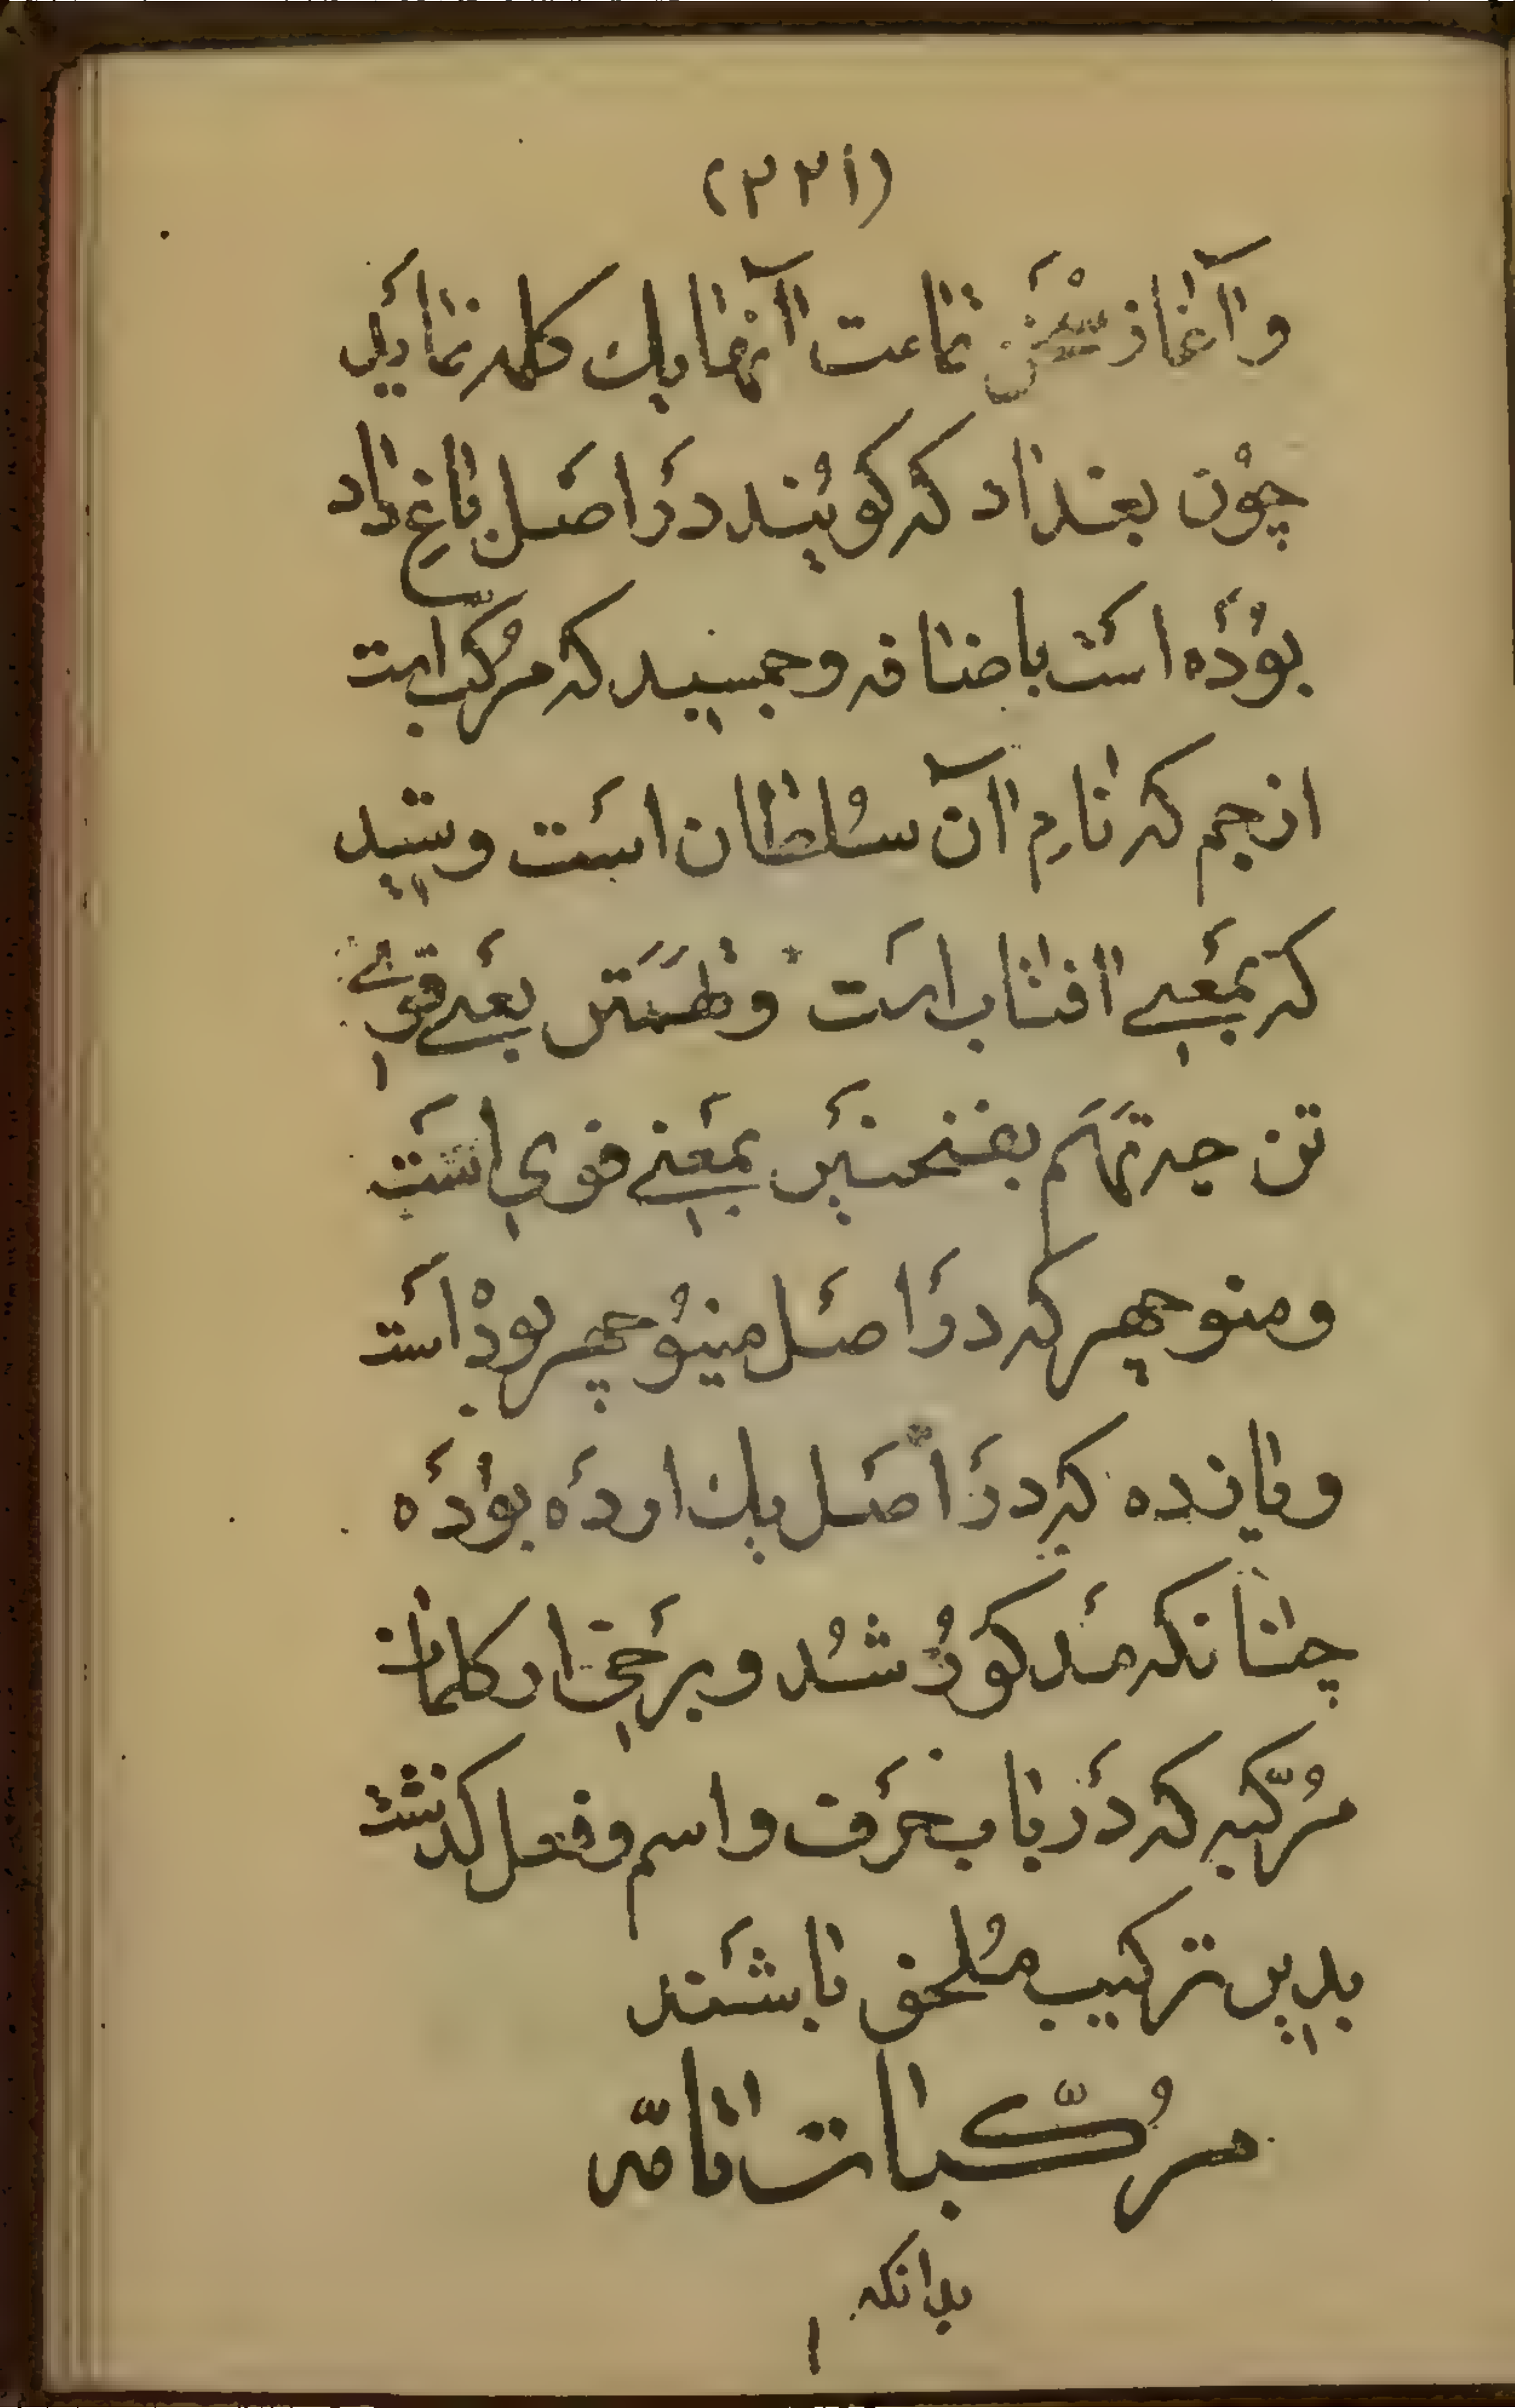 (۲۳۱)
و آغاز سخن تاعت آنها یك کلمه نماید
چُون بغداد که گویند دَر اصَل باغِ داد
بُودَه است باضافه و جمسید که مرُکّب است
از جم که نام آن سُلطان است و سید
که بمَعنے افتاب است و تهَمَتن بمعنے قوي
تن چه تَهَم بفتحتین بمَعنے قوي است
و منوچهر که دَر اصَل مینوُ چهر بودْ است
و یازده که دَر اصَل یك او دَه بوُدَه
چنانکه مَذکوُر شُد و برَخی از کلمات
مُرّکبه که دَر باب حَرف و اسم و فعل گذشت
بدین ترکیب مُلحق باشَند
مرُکّبات تامّه
بدانکه